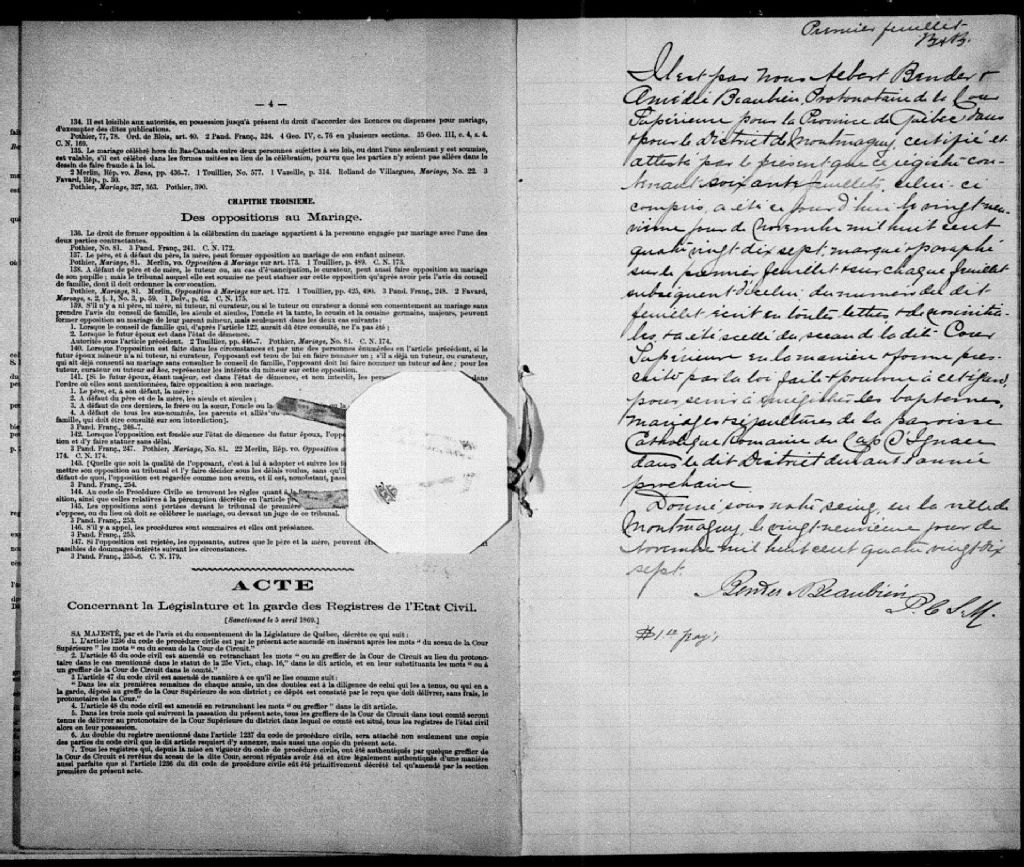 — 4 —
134. Il est loisible aux autorités, en possession jusqu'à présent du droit d'accorder des licences ou dispenses pour mariage,
d'exempter des dites publications.
Pothier, 77, 78. Ord. de Blois, art. 40. 2 Pand. Franç., 324. 4 Geo. IV, c. 76 en plusieurs sections. 35 Geo. III, c. 4, s. 4.
C. N. 169.
135. Le mariage célébré hors du Bas-Canada entre deux personnes sujettes à ses lois, ou dont l'une seulement y est soumise,
est valable, s'il est célébré dans les formes usitées au lieu de la célébration, pourvu que les parties n'y soient pas allées dans le
dessin de faire fraude à la loi.
2 Merlin, Rép. vo. Bans, pp. 436-7. 1 Toullier, No. 577. 1 Vazeille, p. 314. Rolland de Villargues, Mariage, No. 22. 3
Favard, Rép., p. 50.
Pothier, Mariage, 327, 363. Pothier, 390.
CHAPITRE TROISIEME.
Des oppositions au Mariage.
136. Le droit de former opposition à la célébration du mariage appartient à la personne engagée par mariage avec l'une des
deux parties contractantes.
Pothier, No. 81. 3 Pand. Franç., 241. C. N. 172.
137. Le père, et à défaut du père, la mère, peut former opposition au mariage de son enfant mineur.
Pothier, Mariage, 81. Merlin, vo. Opposition à Mariage sur art. 173. 1 Toullier, p. 489. C. N. 173.
138. A défaut de père et de mère, le tuteur ou, au cas d'émancipation, le curateur, peut aussi faire opposition au mariage
de son pupille ; mais le tribunal auquel elle est soumise ne peut statuer sur cette opposition qu'après avoir pris l'avis du conseil
de famille, dont il doit ordonner la convocation.
Pothier, Mariage, 81. Merlin, Opposition à Mariage sur art. 172. 1 Toullier, pp. 425, 490. 3 Pand. Franç., 248. 2 Favard,
Mariage, s. 2, § 1, No. 3, p. 59. 1 Delv., p. 62. C. N. 175.
139. S'il n'y a ni père, ni mère, ni tuteur, ni curateur, ou si le tuteur ou curateur a donné son consentement au mariage sans
prendre l'avis du conseil de famille, les aïeuls et aïeules, l'oncle et la tante, le cousin et la cousine germains, majeurs, peuvent
former opposition au mariage de leur parent mineur, mais seulement dans les deux cas suivants :
1. Lorsque le conseil de famille qui, d'après l'article 122, aurait dû être consulté, ne l'a pas été ;
2. Lorsque le futur époux est dans l'état de démence.
Autorités sous l'article précédent. 2 Toullier, pp. 446-7. Pothier, Mariage, No. 81. C. N. 174.
140. Lorsque l'opposition est faite dans les circonstances et par une des personnes énumérées en l'article précédent, si le
futur époux mineur n'a ni tuteur, ni curateur, l'opposant est tenu de lui en faire nommer un ; s'il a déjà un tuteur, ou curateur,
qui ait déjà consenti au mariage sans consulter le conseil de famille, l'opposant doit lui faire nommer un tuteur ad hoc ; pour les
tuteur, curateur ou tuteur ad hoc, représenter les intérêts du mineur sur cette opposition.
141. [Si le futur époux, étant majeur, est dans l'état de démence, et non interdit, les per
l'ordre où elles sont mentionnées, faire opposition à son mariage. dans
1. Le père, et, à son défaut, la mère ;
2. A défaut du père et de la mère, les aïeuls et aïeules ;
3. A défaut de ces derniers, le frère ou la sœur, l'oncle ou la
4. A défaut de tous les sus-nommés, les parents et alliés
famille, qui doit être consulté sur son interdiction].
3 Pand. Franç., 246-7.
142. Lorsque l'opposition est fondée sur l'état de démence du futur époux, l'oppo
tion et d'y faire statuer sans délai.
3 Pand. Franç., 247. Pothier, Mariage, No. 81. 22 Merlin, Rép. vo. Opposition
174. C. N. 174.
143. [Quelle que soit la qualité de l'opposant, c'est à lui à adopter et suivre les
mettre son opposition au tribunal et l'y faire décider sous les délais voulus, sans qu'il
défaut de quoi, l'opposition est regardée comme non avenue, et il est, nonobstant, pas
3 Pand. Franç., 254.
144. Au code de Procédure Civile se trouvent les règles quant à
sition, ainsi que celles relatives à la péremption décrétée en l'article
145. Les oppositions sont portées devant le tribunal de première
s'oppose, ou du lieu où doit se célébrer le mariage, ou devant un juge de ce tribunal.
3 Pand. Franç., 253.
146. S'il y a appel, les procédures sont sommaires et elles ont préséance.
3 Pand. Franç., 253.
147. Si l'opposition est rejetée, les opposants, autres que le père et la mère, peuvent êt
passibles de dommages-intérêts suivant les circonstances.
3 Pand. Franç., 255-6. C. N. 179.
ACTE
Concernant la Législature et la garde des Registres de l'Etat Civil.
[Sanctionné le 5 avril 1869.]
SA MAJESTÉ, par et de l'avis et du consentement de la Législature de Québec, décrète ce qui suit :
1. L'article 1236 du code de procédure civile est par le présent acte amendé en insérant après les mots " du sceau de la Cour
Supérieure " les mots " ou du sceau de la Cour de Circuit."
2. L'article 45 du code civil est amendé en retranchant les mots " ou au greffier de la Cour de Circuit au lieu du protono-
taire dans le cas mentionné dans le statut de la 25e Vict., chap. 16," dans le dit article, et en leur substituant les mots " ou à
un greffier de la Cour de Circuit dans le comté."
3 L'article 47 du code civil est amendé de manière à ce qu'il se lise comme suit :
" Dans les six premières semaines de chaque année, un des doubles est à la diligence de celui qui les a tenus, ou qui en a
la garde, déposé au greffe de la Cour Supérieure de son district ; ce dépôt est constaté par le reçu que doit délivrer, sans frais, le
protonotaire de la Cour."
4. L'article 48 du code civil est amendé en retranchant les mots " ou greffier " dans le dit article.
5. Dans les trois mois qui suivront la passation du présent acte, tous les greffiers de la Cour de Circuit dans tout comté seront
tenus de délivrer au protonotaire de la Cour Supérieure du district dans lequel ce comté est situé, tous les registres de l'état civil
alors en leur possession.
6. Au double du registre mentionné dans l'article 1237 du code de procédure civile, sera attaché non seulement une copie
des parties du code civil que le dit article requiert d'y annexer, mais aussi une copie du présent acte.
7. Tous les registres qui, depuis la mise en vigueur du code de procédure civile, ont été authentiqués par quelque greffier de
la Cour de Circuit et revêtus du sceau de la dite Cour, seront réputés avoir été et être légalement authentiqués d'une manière
aussi parfaite que si l'article 1236 du dit code de procédure civile eût été primitivement décrété tel qu'amendé par la section
première du présent acte.
Premier feuillet
B&B.
Il est par nous Albert Bender &
Amédé Beaubien, Protonotaire de la Cour
Supérieure pour la Province de Québec dans
& pour le District de Montmagny, certifié et
attesté par le présent que ce registre con-
tenant soixante feuillets, celui-ci
compris, a été ce jourd'hui le vingt neu-
vième jour de Novembre mil huit cent
quatre vingt dix sept, marqué & paraphé
sur le premier feuillet & sur chaque feuillet
subséquent d'icelui du numéro du dit
feuillet écrit en toutes lettres & de nos initia-
les, & a été scellé du sceau de la dite Cour
Supérieure en la manière & forme pres-
crite par la loi, fait & pourvu à cet égard,
pour servir à enregistrer les baptêmes,
mariages & sépultures de la paroisse
Catholique Romaine du Cap St Ignace
dans le dit District durant l'année
prochaine.
Donné sous notre seing, en la ville de
Montmagny, le vingt neuvième jour de
Novembre mil huit cent quatre vingt dix
sept.
Bender & Beaubien
P. C. S. M.
$1.00 payé